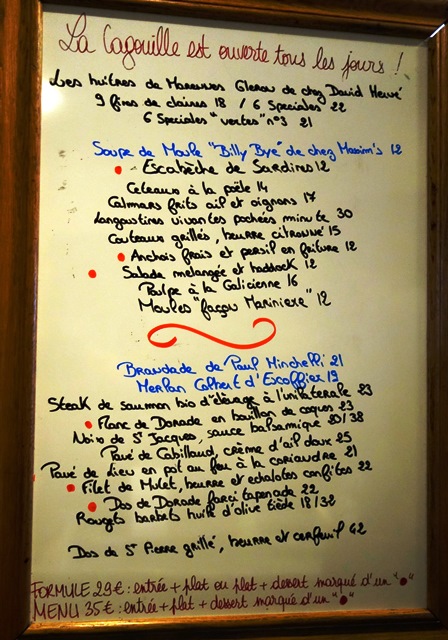 La Cagouille est ouverte tous les jours !
Les huîtres de Marennes Oleron de chez David Hervé
9 fines de claires 18 / 6 Speciales 22
6 Speciales "vertes" n°3 21
Soupe de Moule "Billy Bye" de chez Maxim's 12
• Escabèche de Sardines 12
Ceteaux à la poële 14
Calmars frits ail et oignons 17
Langoustines vivantes pochées minute 30
Couteaux grillés, beurre citronné 15
• Anchois frais et persil en friture 12
• Salade melangée et haddock 12
Poulpe à la Galicienne 16
Moules "façon Mariniere" 12
Brandade de Paul Minchelli 21
Merlan Colbert d'Escoffier 19
Steak de saumon bio d'élevage à l'unilatérale 23
• Flanc de Dorade en bouillon de coques 23
Noix de St Jacques, sauce balsamique 30/38
Pavé de Cabillaud, crème d'ail doux 25
Pavé de Lieu en pot au feu à la coriandre 21
• Filet de Mulet, beurre et echalotes confites 22
• Dos de Dorade farci tapenade 22
Rougets barbets huile d'olive tiède 18/32
Dos de St Pierre grillé, beurre et cerfeuil 42
FORMULE 29€ : entrée + plat ou plat + dessert marqué d'un "•"
MENU 35€ : entrée + plat + dessert marqué d'un "•"